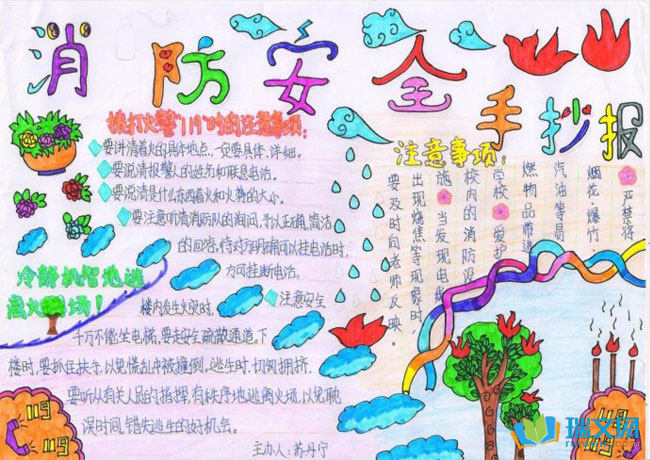 消防安全手抄报
拨打火警"119"时的注意事项:
要讲清着火的具体地点,一定要具体、详细。
要说清报警人的姓名和联系电话。
要说清是什么东西着火和火势的大小。
要注意听清消防队的询问,予以正确,简洁
的回答,待对方明确可以挂电话时,
方可挂断电话。
冷静机智地逃
离火现场!
楼内发生火灾时,
注意安全
千万不能坐电梯,要走安全疏散通道。下
楼时,要抓住扶手,以免慌乱中被撞倒。逃生时,切勿拥挤,
要听从有关人员的指挥,有秩序地逃离火场,以免耽
误时间,错失逃生的好机会。
主办人:苏丹宁
注意事项:
严禁将
烟花、爆竹
汽油等易
燃物品带进
学校 爱护
校内的消防设
施 当发现电线
出现烧焦等现象时,
要及时向老师反映。
119
119
119
119
瑞文网